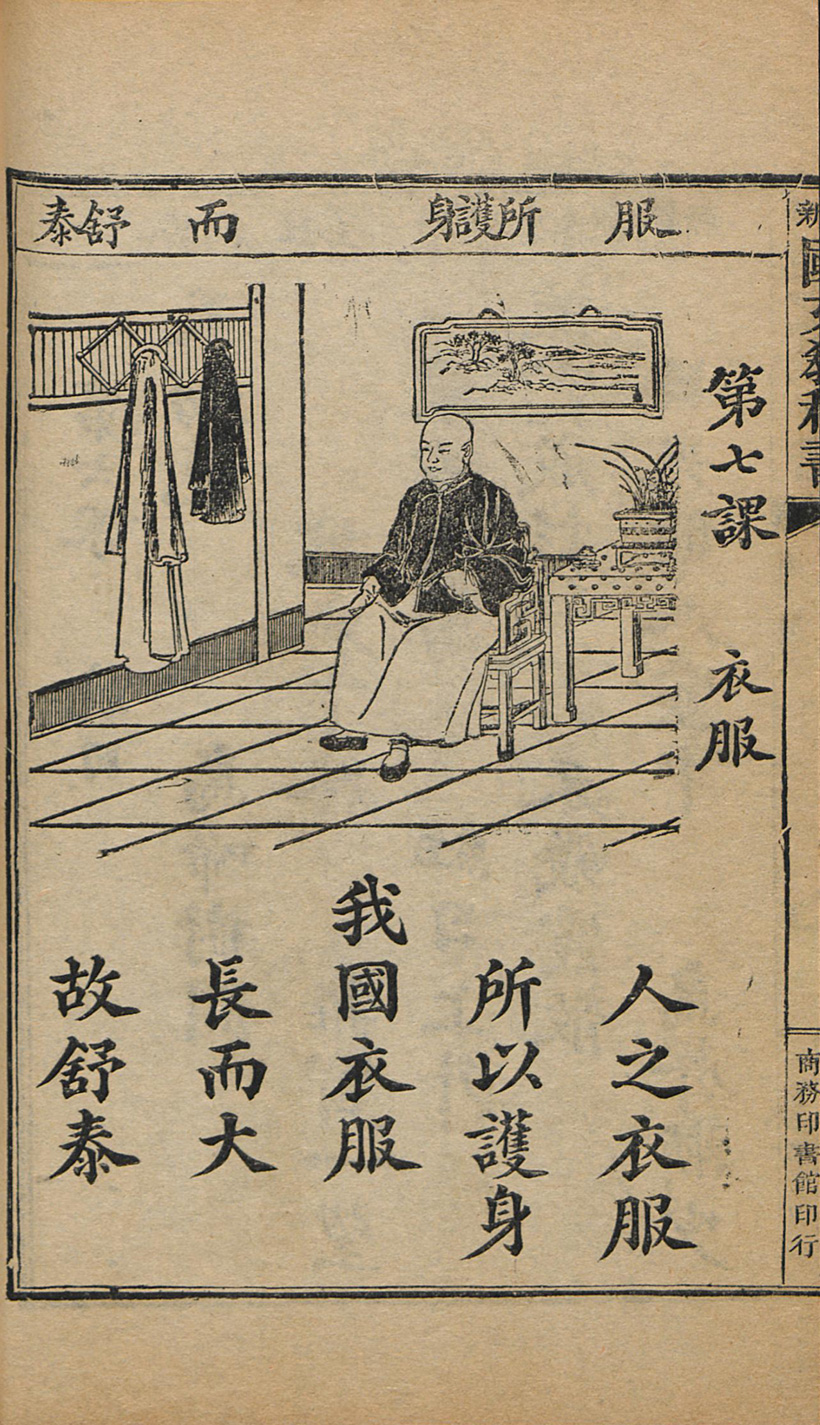 服
所護身
而
舒泰
第七課　衣服
人之衣服
所以護身
我國衣服
長而大
故舒泰
商務印書館印行